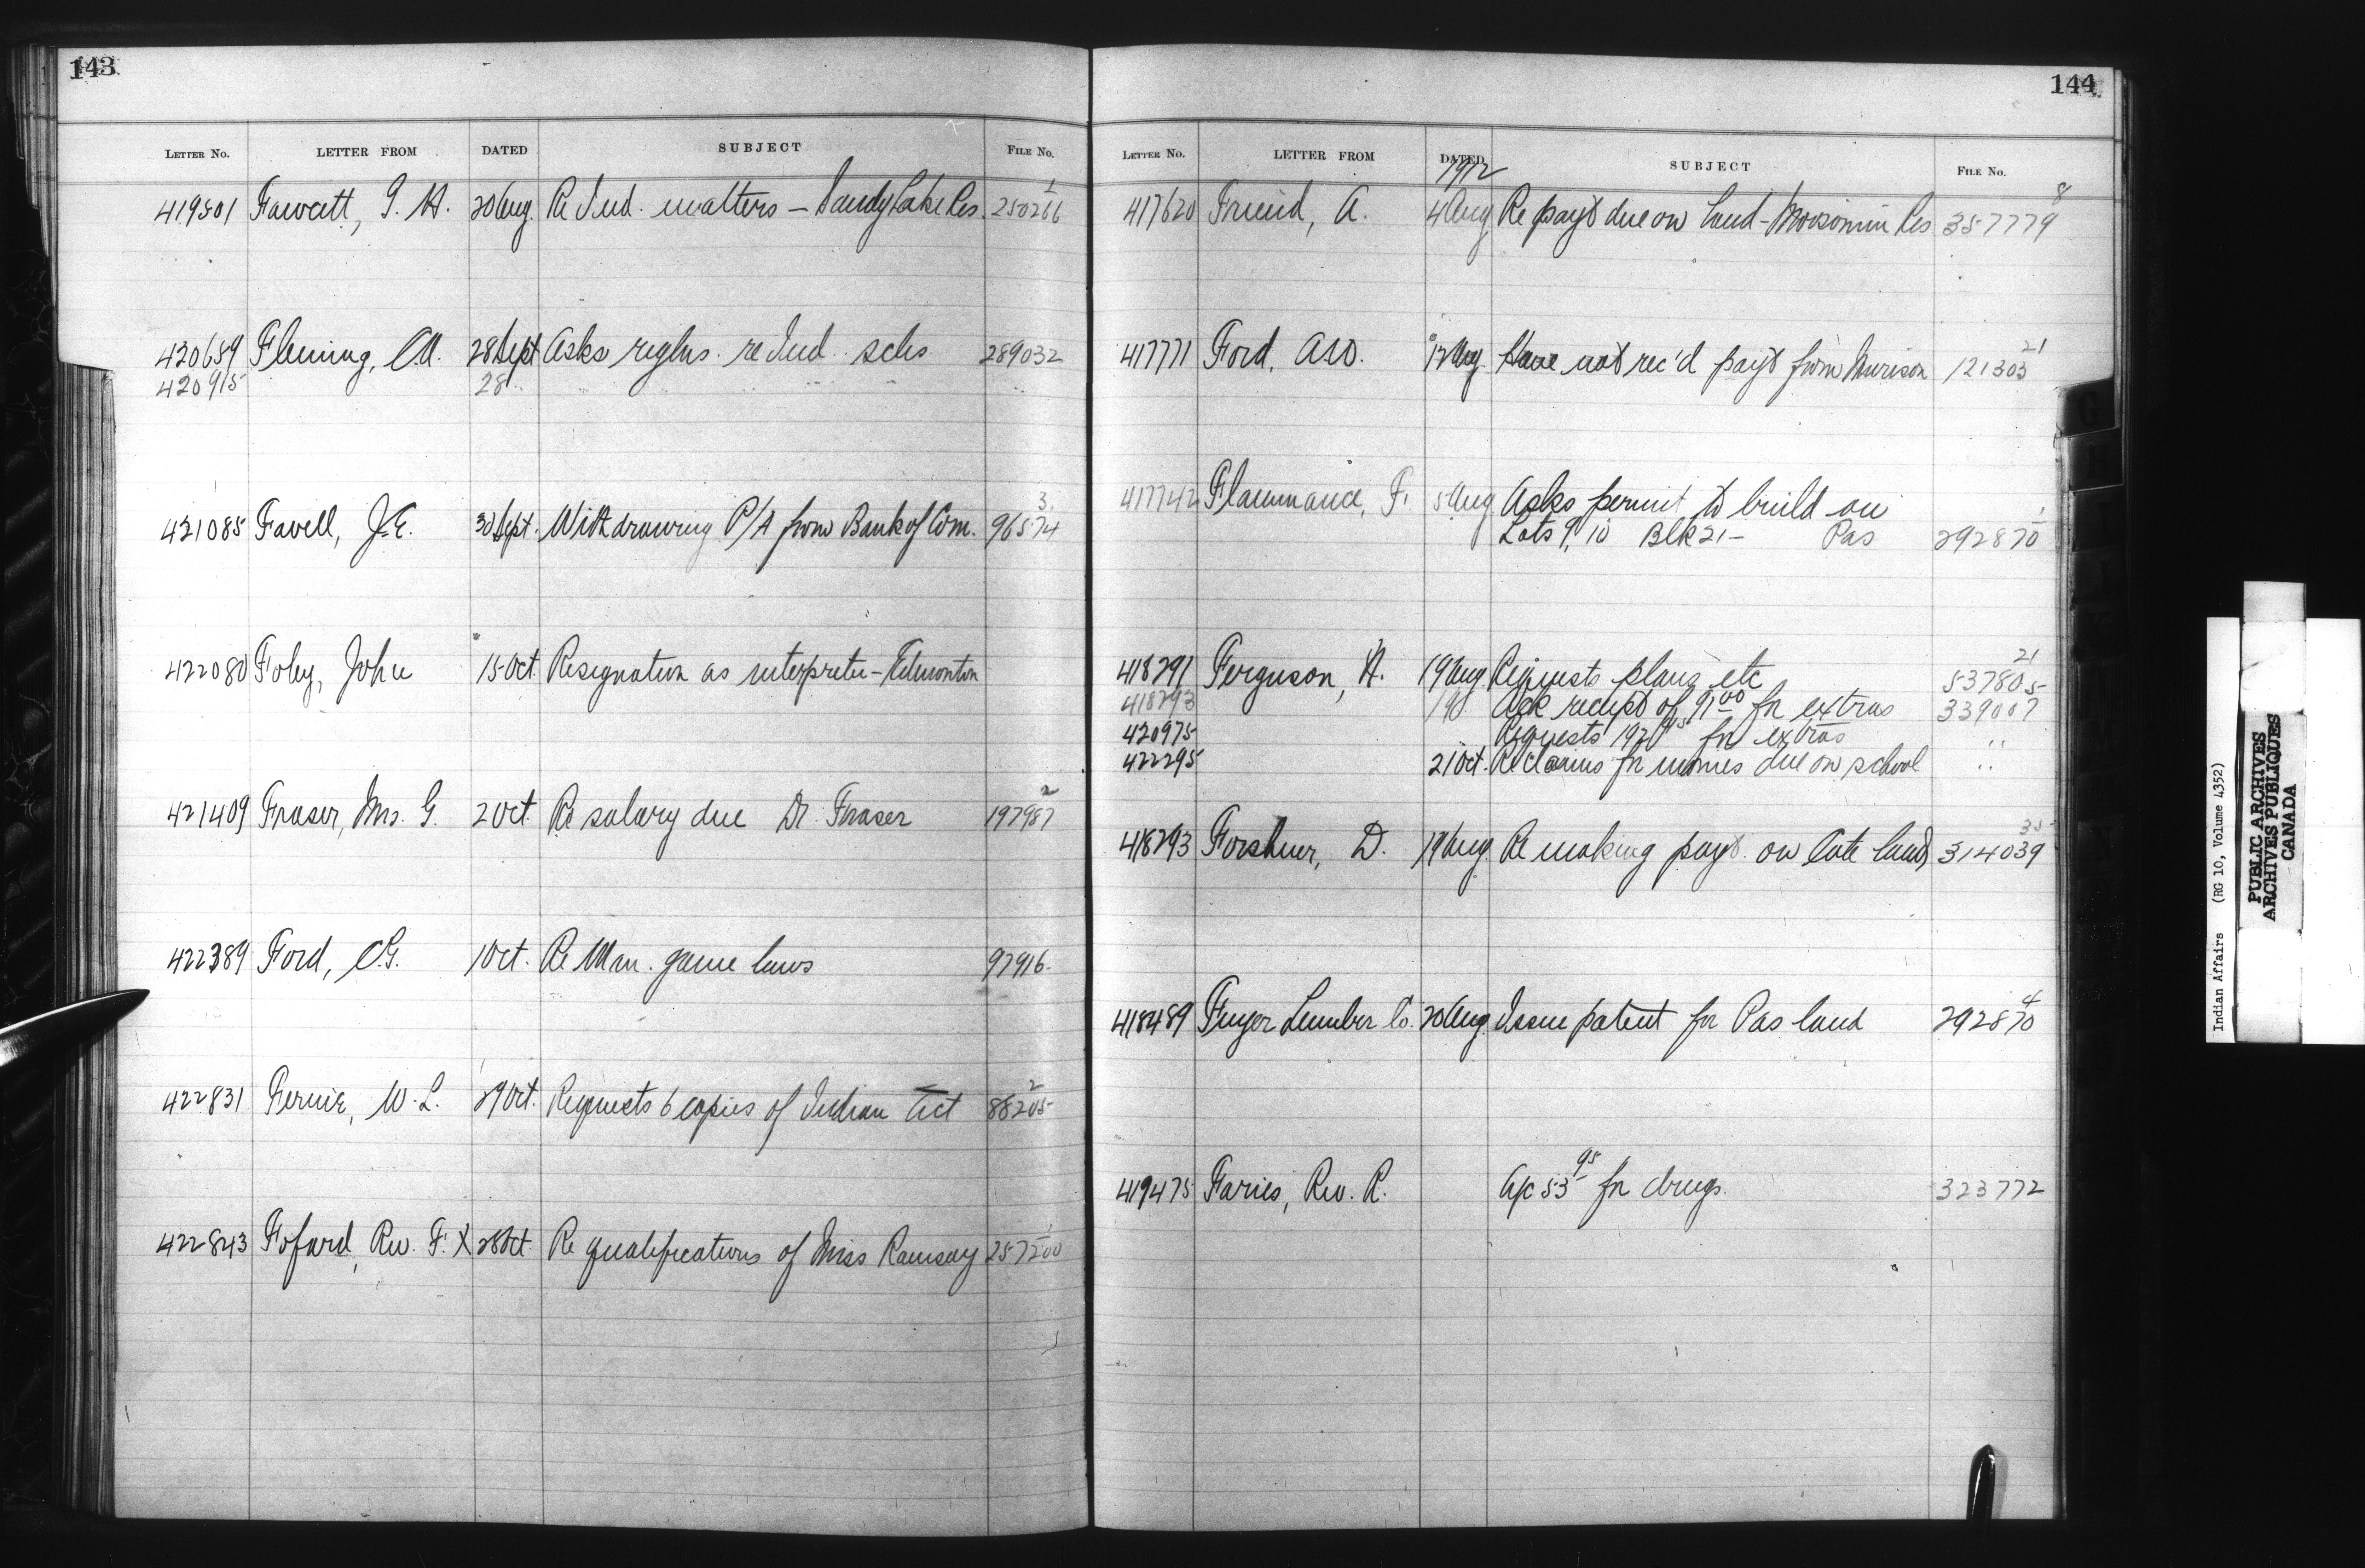 143
LETTER NO. LETTER FROM DATED SUBJECT FILE NO.
419501 Fawcett, 20 Aug. Re Ind. matters – Sandy Lake Res. 250266 1
420689 Fleming, 28 Sept Asks reglns. re Ind. schs 289032
420915 28 " " " " "
421085 Favell, J.E. 30 Sept. Withdrawing P/A from Bank of Com. 96574 3
422080 Foley, John 15 Oct. Resignation as interpreter – Edmonton
421409 Fraser, Mrs. G. 2 Oct. Re salary due Dr. Fraser 197987 2
422389 Ford, C.G. 1 Oct. Re Man. game laws 97916
422831 Fernie, W.L. 29 Oct. Requests 6 copies of Indian Act 88205 2
422843 Fofard, Rev. F. X 28 Oct. Re qualifications of Miss Ramsay 257200 1
144
LETTER NO. LETTER FROM DATED SUBJECT FILE NO.
1912
417620 Friend, A. 4 Aug Re payt due on land – Moosomin Res 357779 8
417771 Ford, 12 Aug. Have not rec'd payt from Murison 121303 21
417742 Flammance, F. 5 Aug Asks permit to build on
Lots 9, 10 Blk 21 – Pas 292870 1
418291 Ferguson, H. 19 Aug Requests plans etc 537805 21
418293 19 Ack receipt of 91 00 for extras 339007
420975 Requests for extras "
422295 21 Oct. Re claims for monies due on school "
418293 Forshner, D. 19 Aug. Re making payt. on Cote land 314039 35
418489 Finger Lumber Co. 20 Aug. Issue patent for Pas land 292870 4
419475 Faries, Rev. R. A/c 53 95 for drugs 323772
Indian Affairs (RG 10, Volume 4352)
PUBLIC ARCHIVES
ARCHIVES PUBLIQUES
CANADA